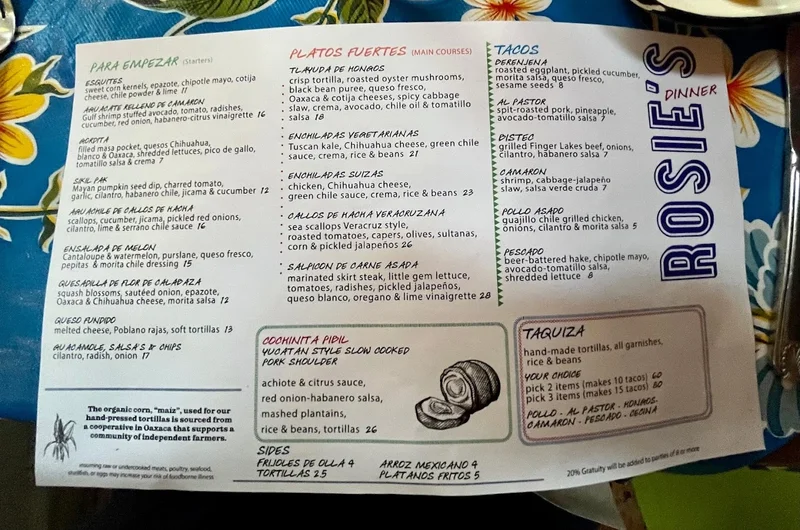 PARA EMPEZAR (Starters)
ESQUITES
sweet corn kernels, epazote, chipotle mayo, cotija
cheese, chile powder & lime 11
AHUACATE RELLENO DE CAMARON
Gulf shrimp stuffed avocado, tomato, radishes,
cucumber, red onion, habanero-citrus vinaigrette 16
GORDITA
filled masa pocket, quesos Chihuahua,
blanco & Oaxaca, shredded lettuces, pico de gallo,
tomatillo salsa & crema 7
SIKIL PAK
Mayan pumpkin seed dip, charred tomato,
garlic, cilantro, habanero chile, jicama & cucumber 12
AHUACHILE DE CALLOS DE HACHA
scallops, cucumber, jicama, pickled red onions,
cilantro, lime & serrano chile sauce 16
ENSALADA DE MELON
Cantaloupe & watermelon, purslane, queso fresco,
pepitas & morita chile dressing 15
QUESADILLA DE FLOR DE CALABAZA
squash blossoms, sautéed onion, epazote,
Oaxaca & Chihuahua cheese, morita salsa 12
QUESO FUNDIDO
melted cheese, Poblano rajas, soft tortillas 13
GUACAMOLE, SALSA'S & CHIPS
cilantro, radish, onion 17
The organic corn, "maiz", used for our
hand-pressed tortillas is sourced from
a cooperative in Oaxaca that supports a
community of independent farmers.
onsuming raw or undercooked meats, poultry, seafood,
shellfish, or eggs may increase your risk of foodborne illness
PLATOS FUERTES (MAIN COURSES)
TLAYUDA DE HONGOS
crisp tortilla, roasted oyster mushrooms,
black bean puree, queso fresco,
Oaxaca & cotija cheeses, spicy cabbage
slaw, crema, avocado, chile oil & tomatillo
salsa 18
ENCHILADAS VEGETARIANAS
Tuscan kale, Chihuahua cheese, green chile
sauce, crema, rice & beans 21
ENCHILADAS SUIZAS
chicken, Chihuahua cheese,
green chile sauce, crema, rice & beans 23
CALLOS DE HACHA VERACRUZANA
sea scallops Veracruz style,
roasted tomatoes, capers, olives, sultanas,
corn & pickled jalapeños 26
SALPICON DE CARNE ASADA
marinated skirt steak, little gem lettuce,
tomatoes, radishes, pickled jalapeños,
queso blanco, oregano & lime vinaigrette 28
COCHINITA PIBIL
YUCATAN STYLE SLOW COOKED
PORK SHOULDER
achiote & citrus sauce,
red onion-habanero salsa,
mashed plantains,
rice & beans, tortillas 26
SIDES
FRIJOLES DE OLLA 4 ARROZ MEXICANO 4
TORTILLAS 2.5 PLATANOS FRITOS 5
TACOS
BERENJENA
roasted eggplant, pickled cucumber,
morita salsa, queso fresco,
sesame seeds 8
AL PASTOR
spit-roasted pork, pineapple,
avocado-tomatillo salsa 7
BISTEC
grilled Finger Lakes beef, onions,
cilantro, habanero salsa 7
CAMARON
shrimp, cabbage-jalapeño
slaw, salsa verde cruda 7
POLLO ASADO
guajillo chile grilled chicken,
onions, cilantro & morita salsa 5
PESCADO
beer-battered hake, chipotle mayo,
avocado-tomatillo salsa,
shredded lettuce 8
TAQUIZA
hand-made tortillas, all garnishes,
rice & beans
YOUR CHOICE
pick 2 items (makes 10 tacos) 60
pick 3 items (makes 15 tacos) 80
POLLO - AL PASTOR - HONGOS-
CAMARON - PESCADO - CECINA
20% Gratuity will be added to parties of 6 or more
ROSIE'S
DINNER